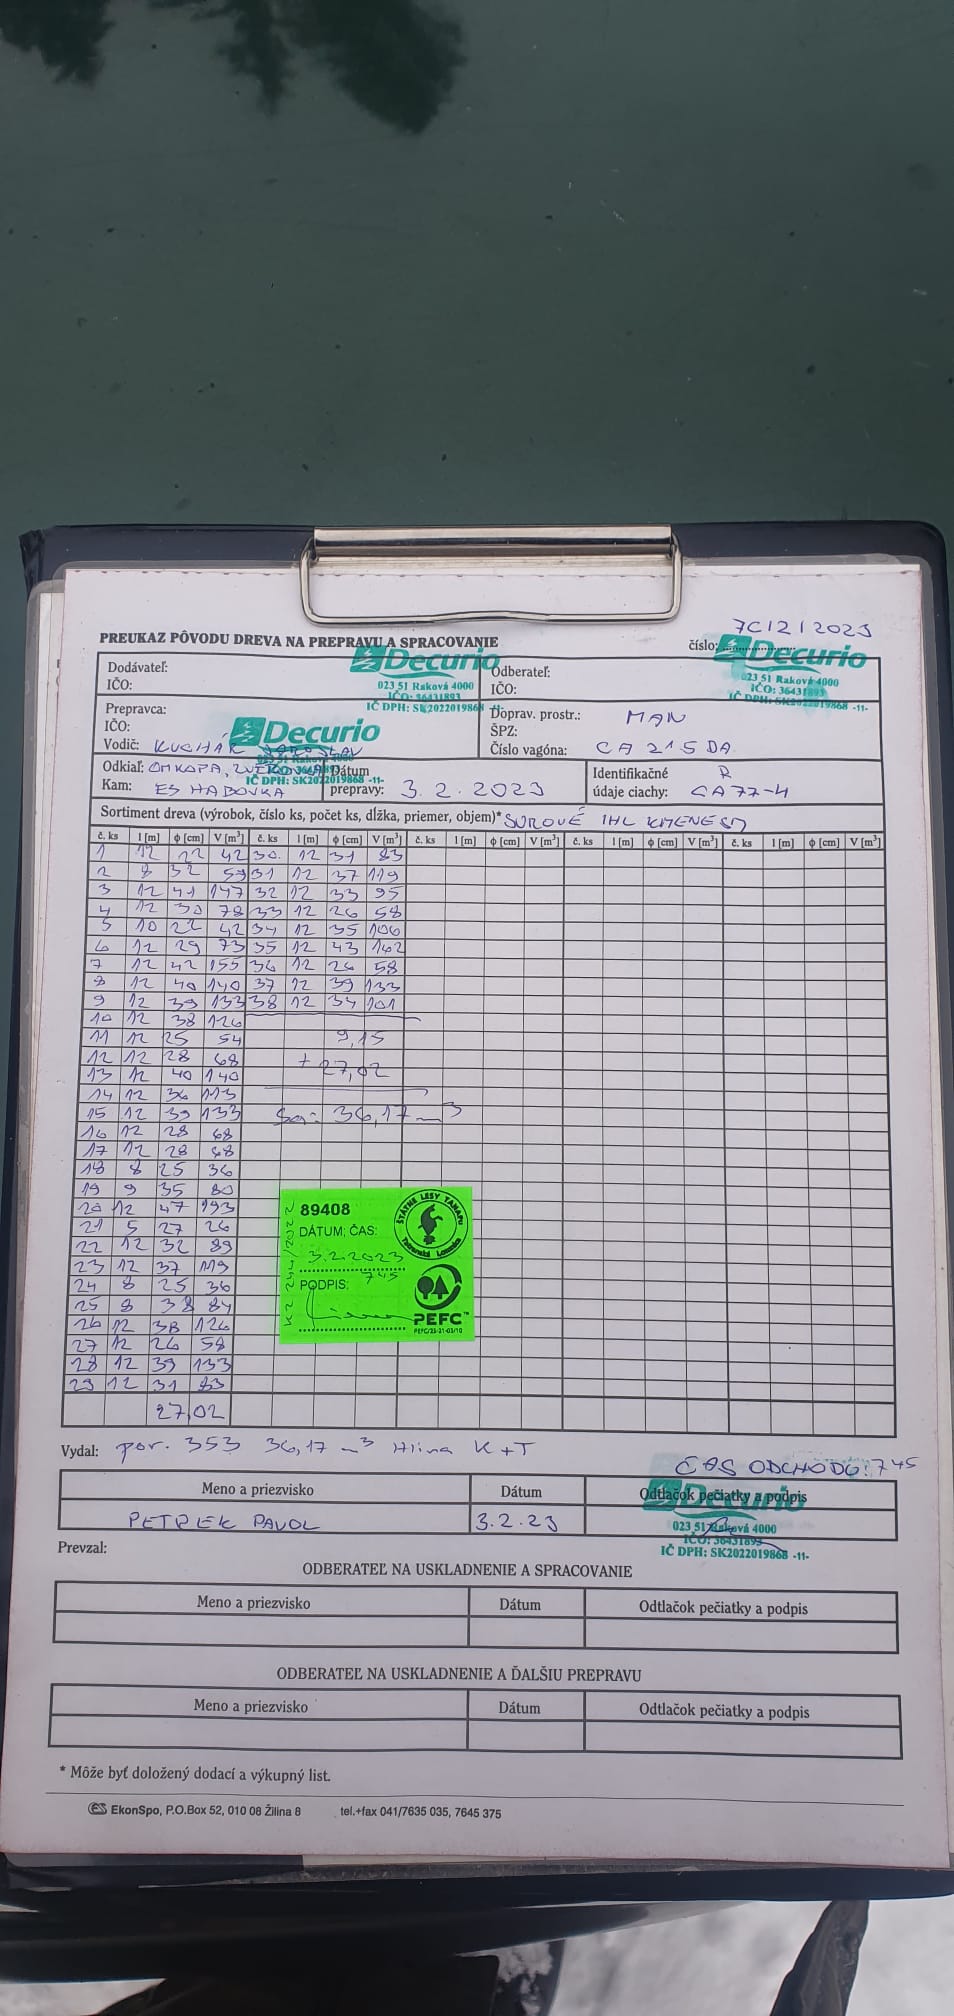 7C/2/2023
PREUKAZ PÔVODU DREVA NA PREPRAVU A SPRACOVANIE
číslo:
Dodávateľ:
IČO:
Decurio
023 51 Raková 4000
IČO: 36431893
IČ DPH: SK2022019868 -11-
Odberateľ:
IČO:
Decurio
023 51 Raková 4000
IČO: 36431893
IČ DPH: SK2022019868 -11-
Prepravca:
IČO:
Vodič: KUCHÁR JAROSLAV
Decurio
023 51 Raková 4000
IČO: 36431893
IČ DPH: SK2022019868 -11-
Doprav. prostr.: MAN
ŠPZ:
Číslo vagóna: CA 215 DA
Odkiaľ: OMKOPA,
Kam: ES HABOVKA
Dátum
prepravy: 3.2.2023
Identifikačné R
údaje ciachy: CA77-4
Sortiment dreva (výrobok, číslo ks, počet ks, dĺžka, priemer, objem)* SUROVÉ IHL KMENE
č. ks l [m] ϕ [cm] V [m³] č. ks l [m] ϕ [cm] V [m³] č. ks l [m] ϕ [cm] V [m³] č. ks l [m] ϕ [cm] V [m³] č. ks l [m] ϕ [cm] V [m³]
1 12 22 42 30. 12 31 83
2 8 32 59 31 12 37 119
3 12 41 147 32 12 33 95
4 12 30 78 33 12 26 58
5 10 22 42 34 12 35 106
6 12 29 73 35 12 43 162
7 12 42 155 36 12 26 58
8 12 40 140 37 12 39 133
9 12 39 133 38 12 34 101
10 12 38 126
11 12 25 54 9,15
12 12 28 68 + 27,02
13 12 40 140
14 12 36 113
15 12 39 133 Sa: 36,17 m³
16 12 28 68
17 12 28 68
18 8 25 36
19 9 35 80
20 12 47 193
21 5 27 26
22 12 32 89
23 12 37 119
24 8 25 36
25 8 38 84
26 12 38 126
27 12 26 58
28 12 39 133
29 12 31 83
27,02
89408
DÁTUM; ČAS:
3.2.2023
745
PODPIS:
ŠTÁTNE LESY TANAPU
Tatranská Lomnica
PEFC™
PEFC/23-21-03/10
Vydal: por. 353 36,17 m³ Hlina K+T
ČAS ODCHODU: 745
Meno a priezvisko Dátum Odtlačok pečiatky a podpis
PETREK PAVOL 3.2.23
Decurio
023 51 Raková 4000
IČO: 36431893
IČ DPH: SK2022019868 -11-
Prevzal:
ODBERATEĽ NA USKLADNENIE A SPRACOVANIE
Meno a priezvisko Dátum Odtlačok pečiatky a podpis
ODBERATEĽ NA USKLADNENIE A ĎALŠIU PREPRAVU
Meno a priezvisko Dátum Odtlačok pečiatky a podpis
* Môže byť doložený dodací a výkupný list.
EkonSpo, P.O.Box 52, 010 08 Žilina 8 tel.+fax 041/7635 035, 7645 375